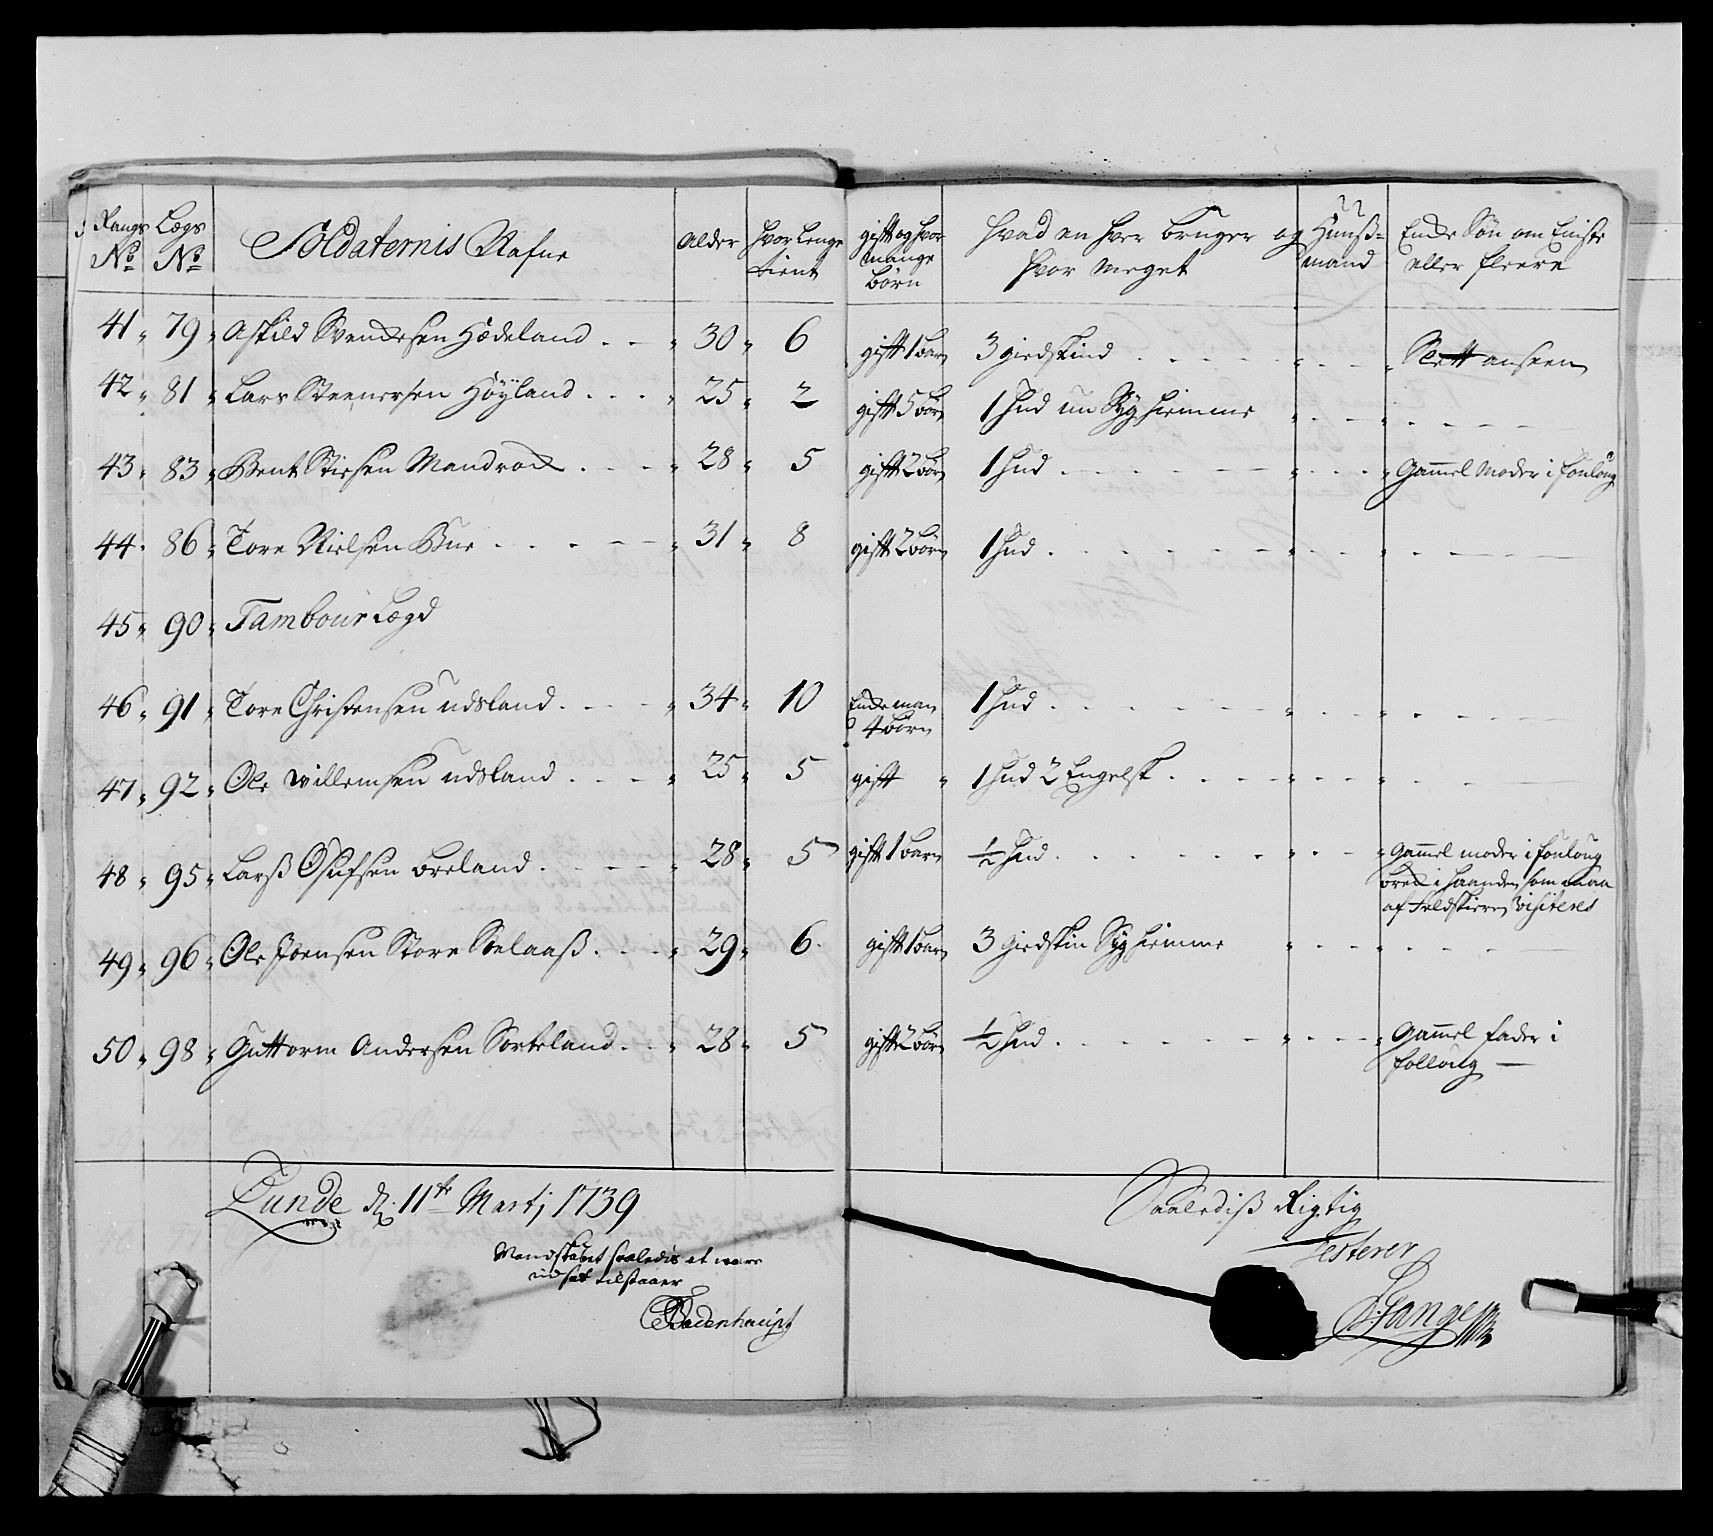 Rangs No | Lægs No | Soldaternis Nafne | Alder | hvor lenge tient | gift og hvor mange børn | hvad en hver bruger og hvor meget | Huuß-mand | Eene Søn om Eniste eller fleere
41 | 79 | Askild Svendsen Hædeland | 30 | 6 | gift 1 barn | 3 giedskind | | Slett anseen
42 | 81 | Lars Steenersen Höyland | 25 | 2 | gift 5 börn | 1 hud nu Syg hiemme
43 | 83 | Bent Stiesen Mandrod | 28 | 5 | gift 2 börn | 1 hud | | Gammel Moder i fouloug
44 | 86 | Tore Nielsen Bue | 31 | 8 | gift 2 börn | 1 hud
45 | 90 | Tambour Lægd
46 | 91 | Tore Christensen udsland | 34 | 10 | Enke man 4 börn | 1 hud
47 | 92 | Ole Willemsen udsland | 25 | 5 | gift | 1 hud 2 Engelsk
48 | 95 | Larß Osufsen breland | 28 | 5 | gift 1 barn | 1/2 hud | | gammel moder i fouloug
brek i haanden som maa
af Feldskieren Visiteres
49 | 96 | Ole Joensen Store Stelaaß | 29 | 6 | gift 1 barn | 3 Giedskin Syg hiemme
50 | 98 | Guttorm Andersen Sorteland | 28 | 5 | gift 2 börn | 1/2 hud | | Gammel fader i
folloug
Lunde d. 11te Martj 1739
Mandskabet saaledis at være
udsat tilstaaer
Bodenhaupt
Saalediß Rigtig
Testerer
Stange